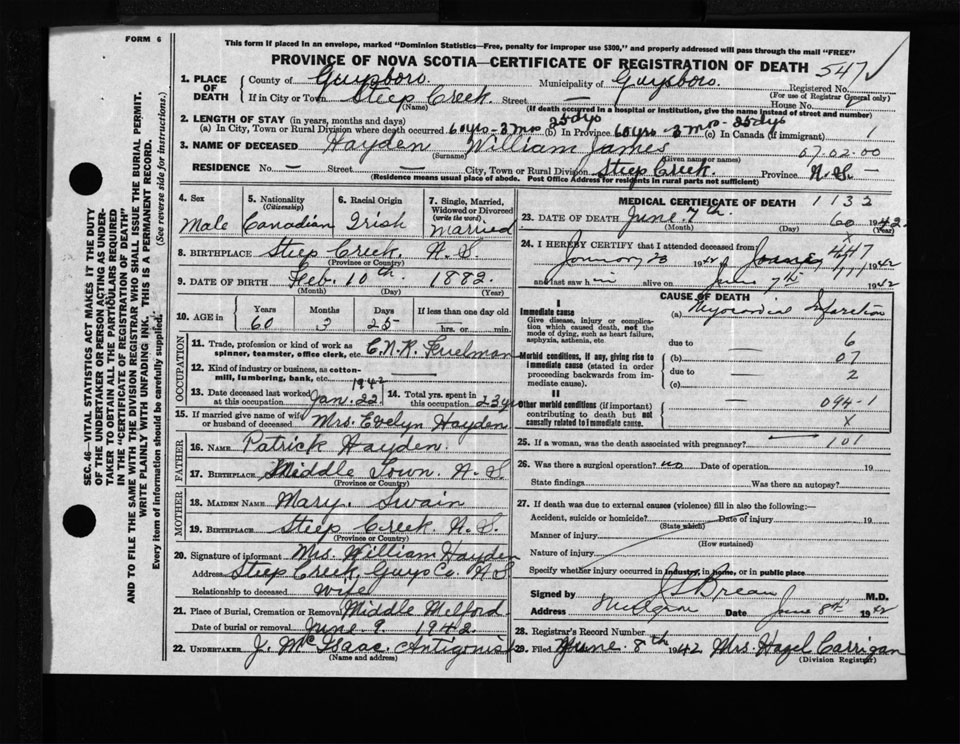 FORM 6
This form if placed in an envelope, marked "Dominion Statistics—Free, penalty for improper use $300," and properly addressed will pass through the mail "FREE"
PROVINCE OF NOVA SCOTIA—CERTIFICATE OF REGISTRATION OF DEATH 547
1. PLACE OF DEATH County of Guysboro. Municipality of Guysboro. Registered No.
(For use of Registrar General only)
If in City or Town Steep Creek. Street — House No.
(Name) (If death occurred in a hospital or institution, give the name instead of street and number)
2. LENGTH OF STAY (in years, months and days)
(a) In City, Town or Rural Division where death occurred 60 yrs - 3 mos 25 dys (b) In Province 60 yrs - 3 mos - 25 dys (c) In Canada (if immigrant) 1
3. NAME OF DECEASED Hayden William James 07-02-00
(Surname) (Given name or names)
RESIDENCE No. — Street City, Town or Rural Division Steep Creek. Province N.S. —
(Residence means usual place of abode. Post Office Address for residents in rural parts not sufficient)
4. Sex Male
5. Nationality (Citizenship) Canadian
6. Racial Origin Irish
7. Single, Married, Widowed or Divorced (write the word) Married
8. BIRTHPLACE Steep Creek. N.S.
(Province or Country)
9. DATE OF BIRTH Feb. 10th 1882.
(Month) (Day) (Year)
10. AGE Years 60 Months 3 Days 25 If less than one day old hrs. or min.
OCCUPATION
11. Trade, profession or kind of work as spinner, teamster, office clerk, etc. C.N.R. Fuelman
12. Kind of industry or business, as cotton-mill, lumbering, bank, etc.
13. Date deceased last worked at this occupation Jan. 22. 1942
14. Total yrs. spent in this occupation 23 yrs
15. If married give name of wife or husband of deceased Mrs. Evelyn Hayden
FATHER
16. NAME Patrick Hayden.
17. BIRTHPLACE Middle Town. N.S.
(Province or Country)
MOTHER
18. MAIDEN NAME Mary. Swain
19. BIRTHPLACE Steep Creek. N.S.
(Province or Country)
20. Signature of informant Mrs. William Hayden
Address Steep Creek, Guys Co. N.S.
Relationship to deceased Wife
21. Place of Burial, Cremation or Removal Middle Melford
Date of burial or removal June. 9. 1942.
22. UNDERTAKER J. McIsaac. Antigonish
(Name and address)
MEDICAL CERTIFICATE OF DEATH 1132
23. DATE OF DEATH June. 7th. 60 1942
(Month) (Day) (Year)
24. I HEREBY CERTIFY that I attended deceased from X
January 23 1942 447 1942
and last saw him alive on June 7th 1942
CAUSE OF DEATH
I
Immediate cause
Give disease, injury or complication which caused death, not the mode of dying, such as heart failure, asphyxia, asthenia, etc.
(a) Myocardial Infarction
due to 6
Morbid conditions, if any, giving rise to immediate cause (stated in order proceeding backwards from immediate cause).
(b) 07
due to 2
(c)
II
Other morbid conditions (if important) contributing to death but not causally related to immediate cause.
094-1
X
25. If a woman, was the death associated with pregnancy? 101
26. Was there a surgical operation? no Date of operation 19
State findings Was there an autopsy?
27. If death was due to external causes (violence) fill in also the following:—
Accident, suicide or homicide? Date of injury 19
(State which)
Manner of injury
(How sustained)
Nature of injury
Specify whether injury occurred in industry, in home, or in public place
Signed by M.D.
Address Mulgrave Date June 8th 1942
28. Registrar's Record Number
29. Filed June. 8th 1942 Mrs. Hazel Carrigan
(Division Registrar)
SEC. 46—VITAL STATISTICS ACT MAKES IT THE DUTY
OF THE UNDERTAKER OR PERSON ACTING AS UNDER-
TAKER TO OBTAIN ALL THE PARTICULARS REQUIRED
IN THE "CERTIFICATE OF REGISTRATION OF DEATH"
AND TO FILE THE SAME WITH THE DIVISION REGISTRAR WHO SHALL ISSUE THE BURIAL PERMIT.
WRITE PLAINLY WITH UNFADING INK. THIS IS A PERMANENT RECORD.
Every item of information should be carefully supplied. (See reverse side for instructions.)